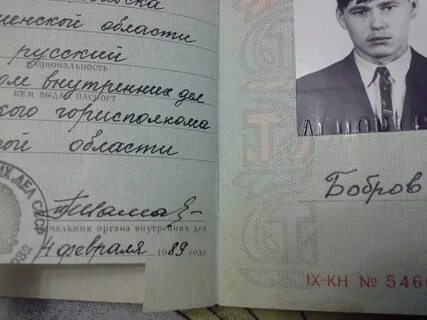 енской области
русский
НАЦИОНАЛЬНОСТЬ
ом внутренних дел
КЕМ ВЫДАН ПАСПОРТ
кого горисполкома
ой области
чальник органа внутренних дел
4 февраля 1989 года
Бобров
IX-КН № 546